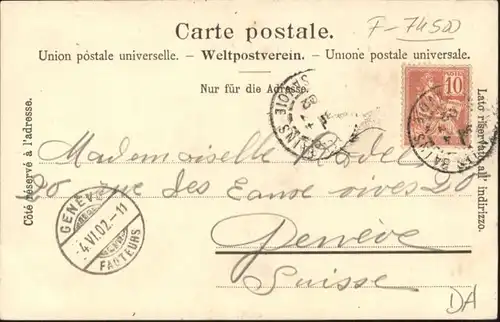 Carte postale.
F-7450
Union pôstale universelle. - Weltpostverein. - Unione postale universale.
Nur für die Adresse.
Côté réservé à l'adresse.
Lato riservato all' indirizzo.
POSTES
10
SAVOIE
BAINS
Mademoiselle
20 rue des Eaux vives 20
Genève
Suisse
GENÈVE
4.VI.02.-11
FACTEURS
DA